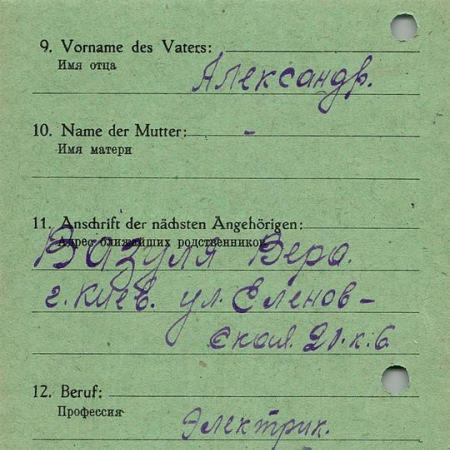 9. Vorname des Vaters:
Имя отца
Александр.
10. Name der Mutter: -
Имя матери
11. Anschrift der nächsten Angehörigen:
Адрес ближайших родственников
Вазуля Вера.
г. Киев. ул. Еленов-
ская. 21. к. 6
12. Beruf:
Профессия
Электрик.